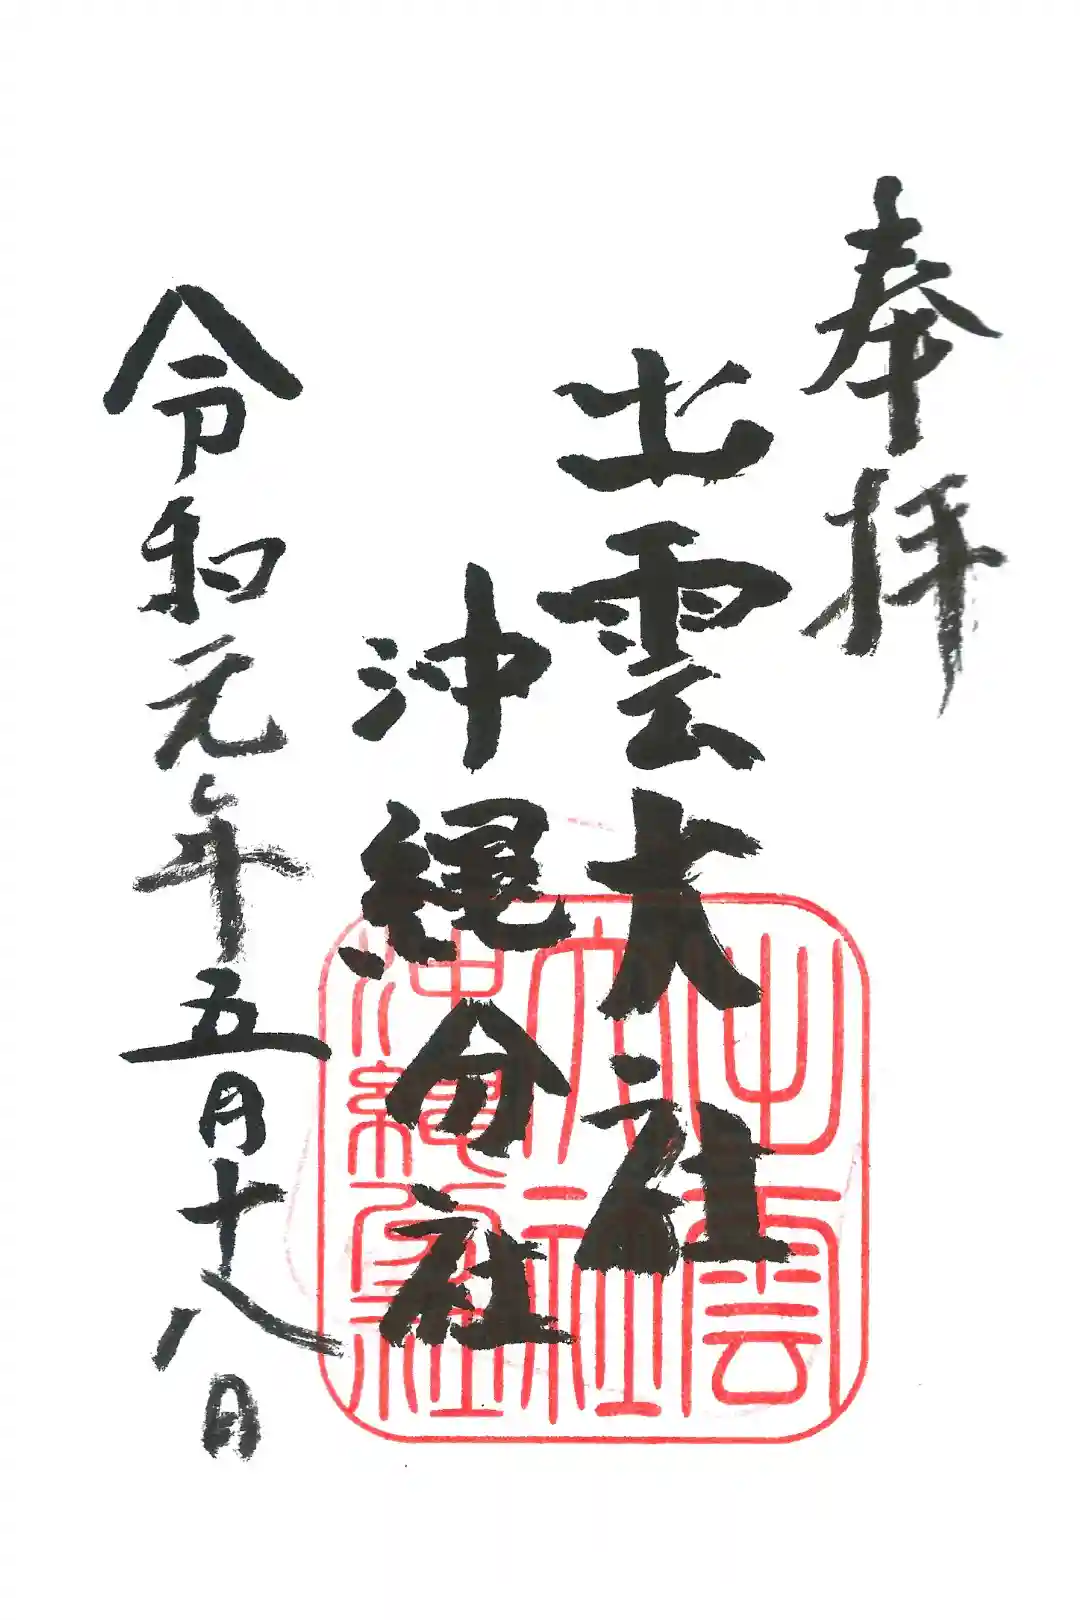 奉拝
出雲大社
沖縄分社
令和元年五月十八日
出雲
大社
沖縄分社